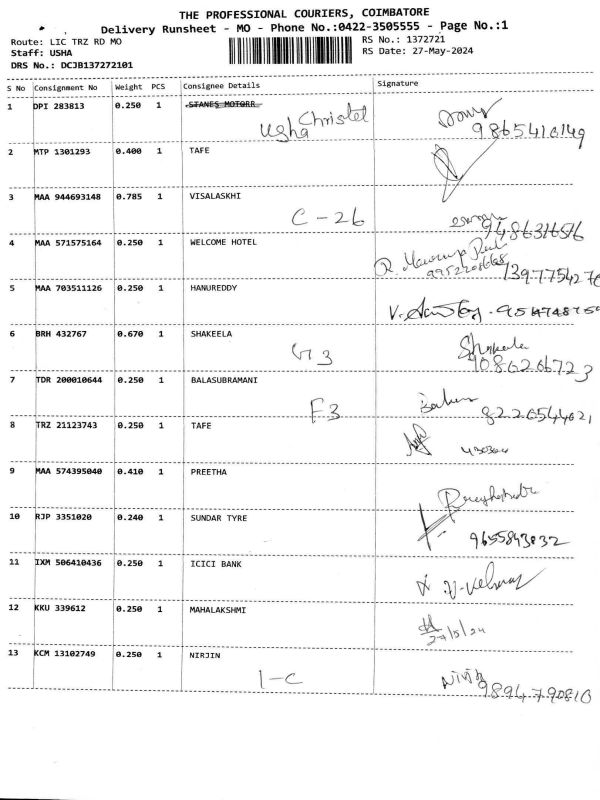 THE PROFESSIONAL COURIERS, COIMBATORE
Delivery Runsheet - MO - Phone No.:0422-3505555 - Page No.:1
Route: LIC TRZ RD MO
RS No.: 1372721
Staff: USHA
RS Date: 27-May-2024
DRS No.: DCJB137272101
S No Consignment No Weight PCS Consignee Details Signature
1 DPI 283813 0.250 1 STANES MOTORR
Christel
Usha
9865410149
2 MTP 1301293 0.400 1 TAFE
3 MAA 944693148 0.785 1 VISALASKHI
C-26
4 MAA 571575164 0.250 1 WELCOME HOTEL
5 MAA 703511126 0.250 1 HANUREDDY
6 BRH 432767 0.670 1 SHAKEELA
G3
Shakeela
9086266723
7 TDR 200010644 0.250 1 BALASUBRAMANI
F3
8220544021
8 TRZ 21123743 0.250 1 TAFE
9 MAA 574395040 0.410 1 PREETHA
10 RJP 3351020 0.240 1 SUNDAR TYRE
9655843832
11 IXM 506410436 0.250 1 ICICI BANK
12 KKU 339612 0.250 1 MAHALAKSHMI
27/5/24
13 KCM 13102749 0.250 1 NIRJIN
1-C
9894790810